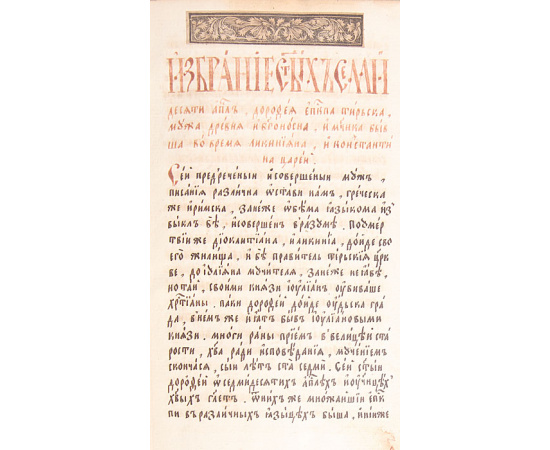 И҆ЗБРА́НЇЕ СТ҃Ы́ХЪ СЕ́МИ
десѧти а҆пл҃ъ, дороѳе́ѧ е҆пкⷭ҇па ти́рьска,
мꙋ́жа дре́внѧ и҆ бг҃оно́сна, и҆ мч҃нка бы́в
ша во вре́мѧ лики́нїѧ, и҆ ко́нстанти
на царе́й
Се́й пред̾рече́нныи и҆ соверше́ныи мꙋ́жъ,
писа́нїѧ разли́чна ѡ҆ста́ви на́мъ, гре́ческа
же и҆ ри́мска, зане́же ѡ҆бѣ́ма ꙗ҆зы́кома и҆з
вы́клъ бѣ̀, и҆ соверше́нъ в̾ ра́зꙋмѣ. По ꙋ҆ме́р
твїи же дїоклитїа́на, и҆ лики́нїа, до́йде сво
его̀ жили́ща, и҆ бѣ̀ прави́тель ти́рьскїѧ цр҃к
ве, до і҆ꙋлїа́на мꙋчи́телѧ, зане́же не ꙗ҆́вѣ,
но та́й, свои́ми кнѧ́зи і҆ꙋлїа́нъ ᲂу҆бива́ше
хрⷭ҇тїа́ны. па́ки дороѳе́й до́йде ᲂу҆дь́ска гра́
да, в̾не́мже ꙗ҆́тъ бы́въ і҆ꙋлїа́новыми
кнѧ́зи. мно́ги ра́ны прїе́мъ в̾ вели́цѣй ста́
рости, хв҃а ра́ди и҆сповѣ́данїѧ, мꙋче́нїемъ
сконча́сѧ, сы́й лѣ́тъ ста̀ седмѝ. Се́й ст҃ы́й
дороѳе́й ѡ҆ седми́десѧтихъ а҆пⷭ҇лѣхъ и҆ ᲂу҆чн҃цѣ́хъ
хв҃ы́хъ гл҃етъ. ѿ ни́хже мно́жайшїи е҆пⷭ҇к
пи в̾ разли́чныхъ ꙗ҆зы́цѣхъ бы́ша, и҆ ни́же